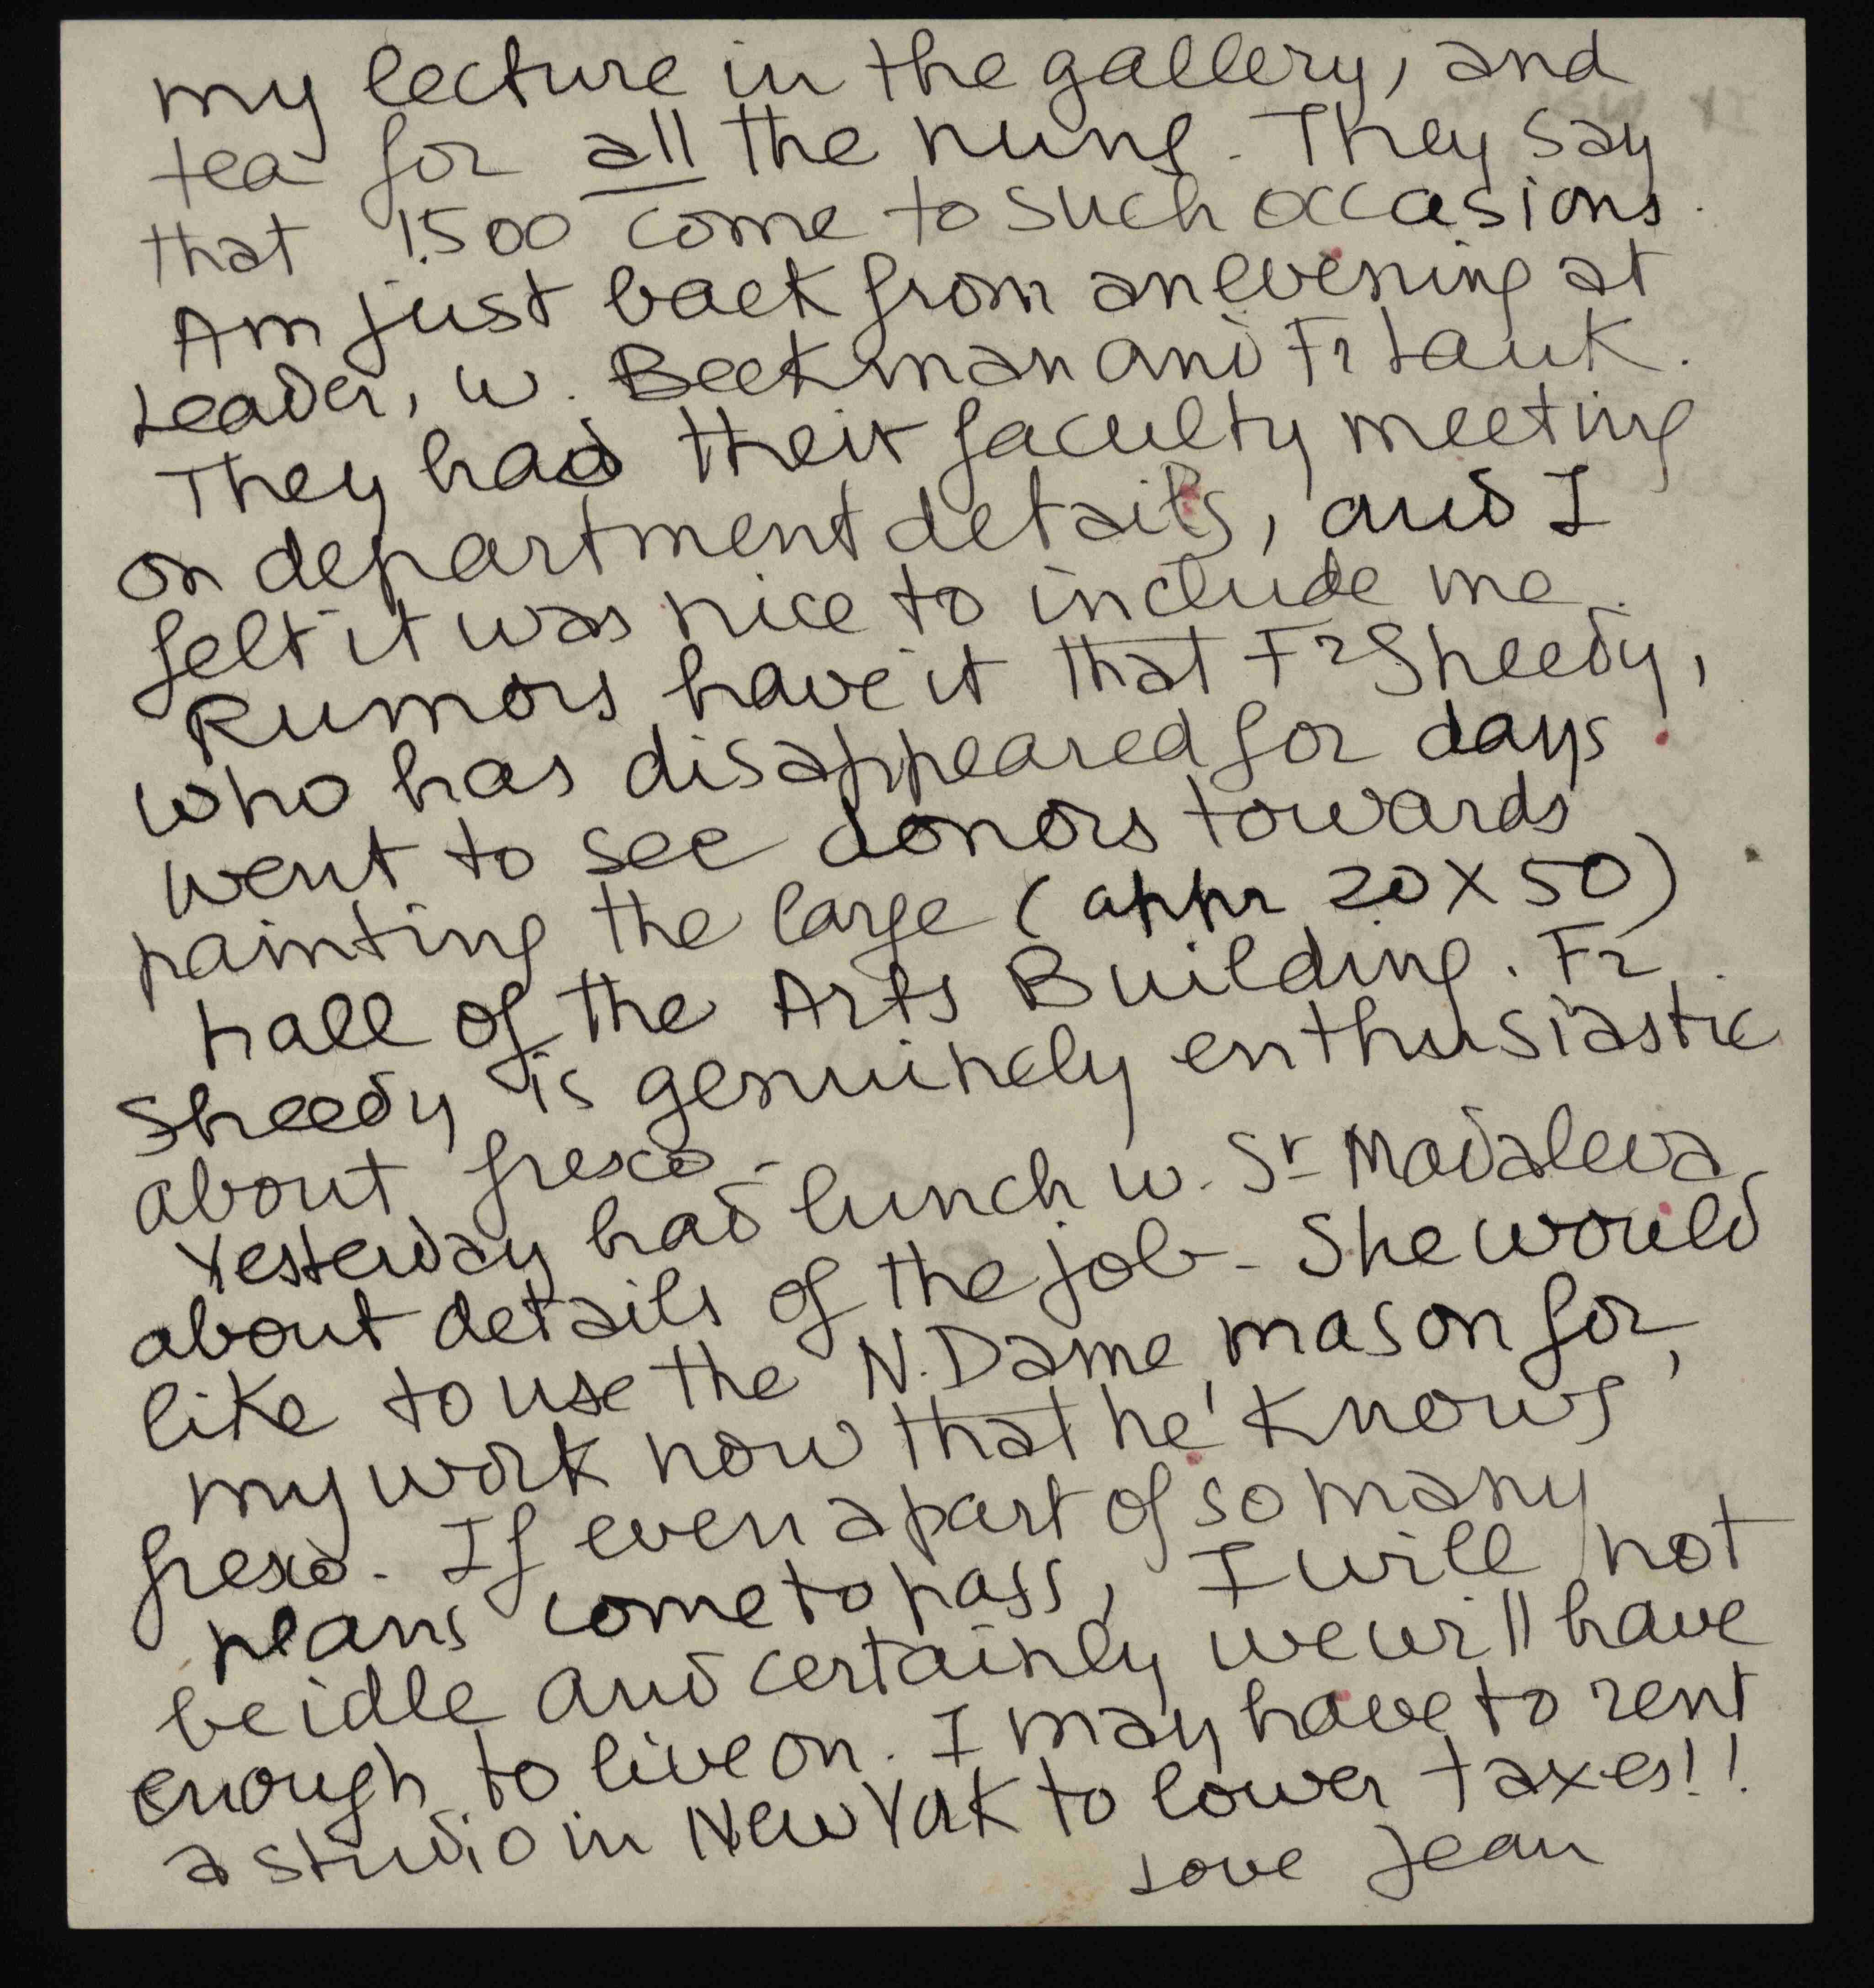 my lecture in the gallery, and
tea for all the nuns. They say
that 1500 come to such occasions.
Am just back from an evening at
Leader, w. Beckman and Fr Lauk.
They had their faculty meeting
on department details, and I
felt it was nice to include me.
Rumors have it that Fr Sheedy,
who has disappeared for days
went to see donors towards
painting the large (appr 20 X 50)
hall of the Arts Building. Fr
Sheedy is genuinely enthusiastic
about fresco.
Yesterday had lunch w. Sr Madaleva
about details of the job - She would
like to use the N. Dame mason for
my work now that he 'knows'
fresco. If even a part of so many
plans come to pass, I will not
be idle and certainly we will have
enough to live on. I may have to rent
a studio in New York to lower taxes!!
Love Jean